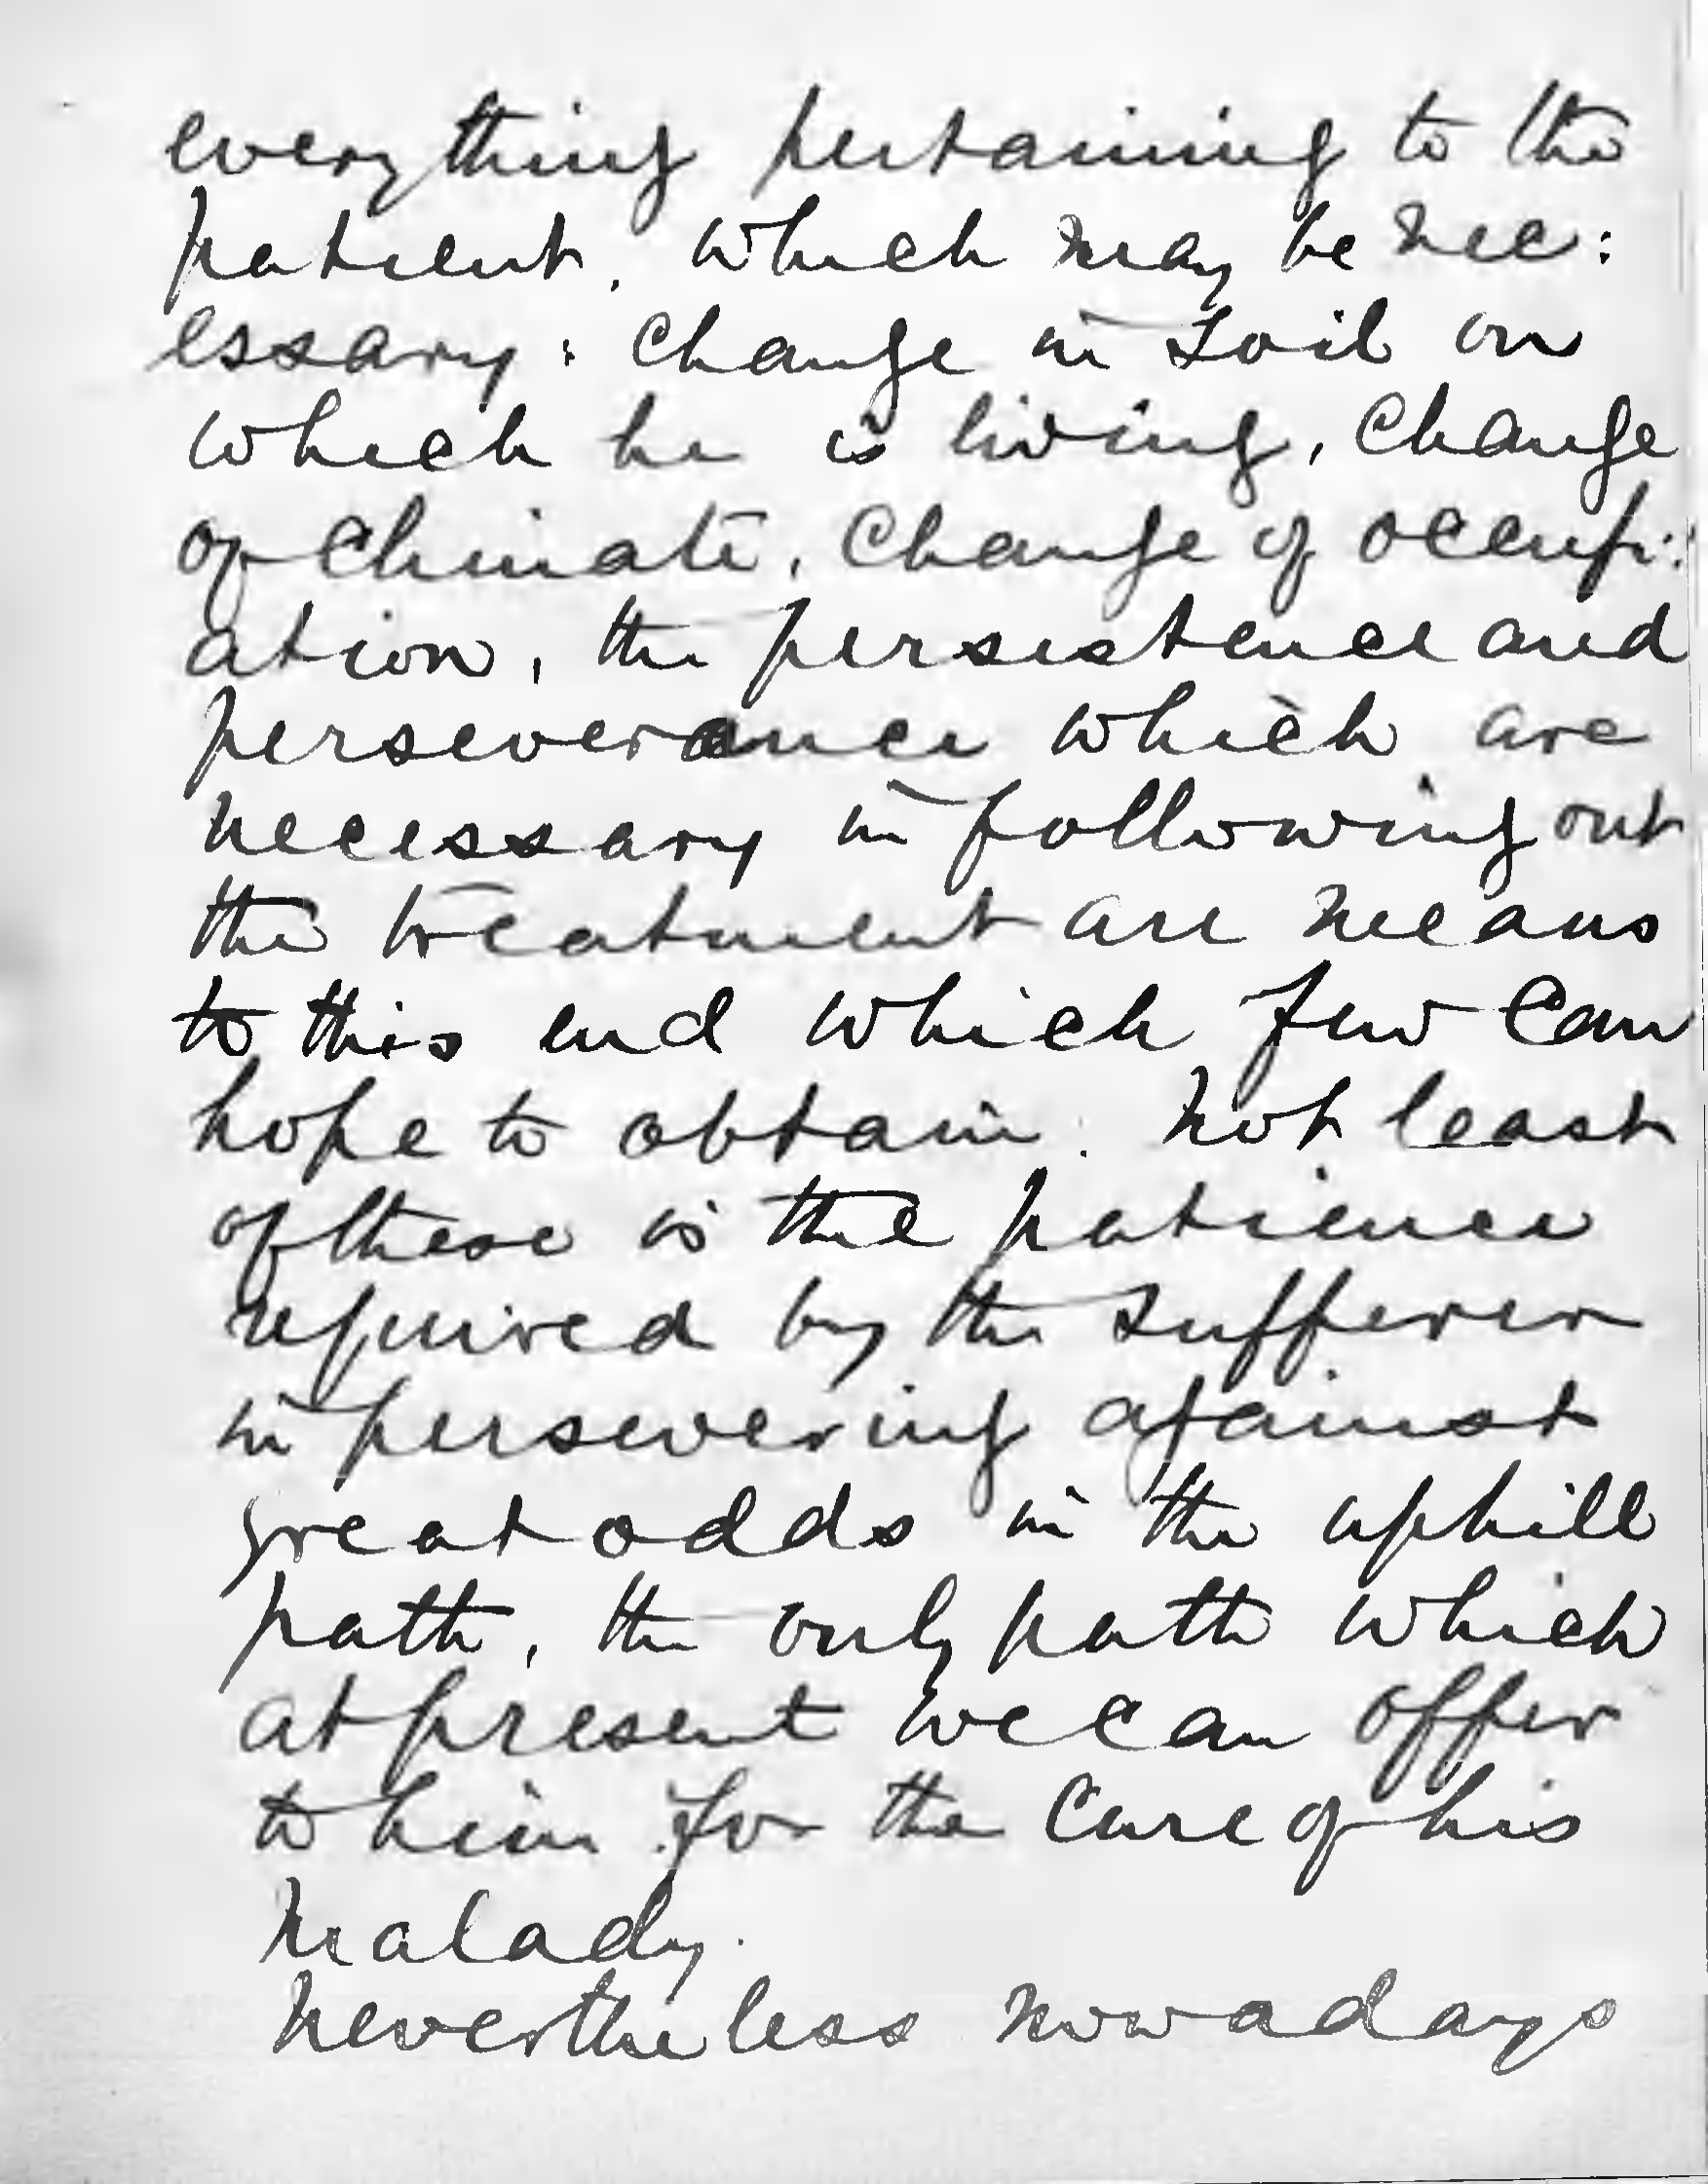 everything pertaining to the
patient, which may be nec:
essary: change in soil on
which he is living, change
of climate, change of occup:
ation, the persistence and
perseverance which are
necessary in following out
the treatment are means
to this end which few can
hope to obtain. Not least
of these is the patience
required by the sufferer
in persevering against
great odds in the uphill
path, the only path which
at present we can offer
to him for the cure of his
malady.
Nevertheless nowadays